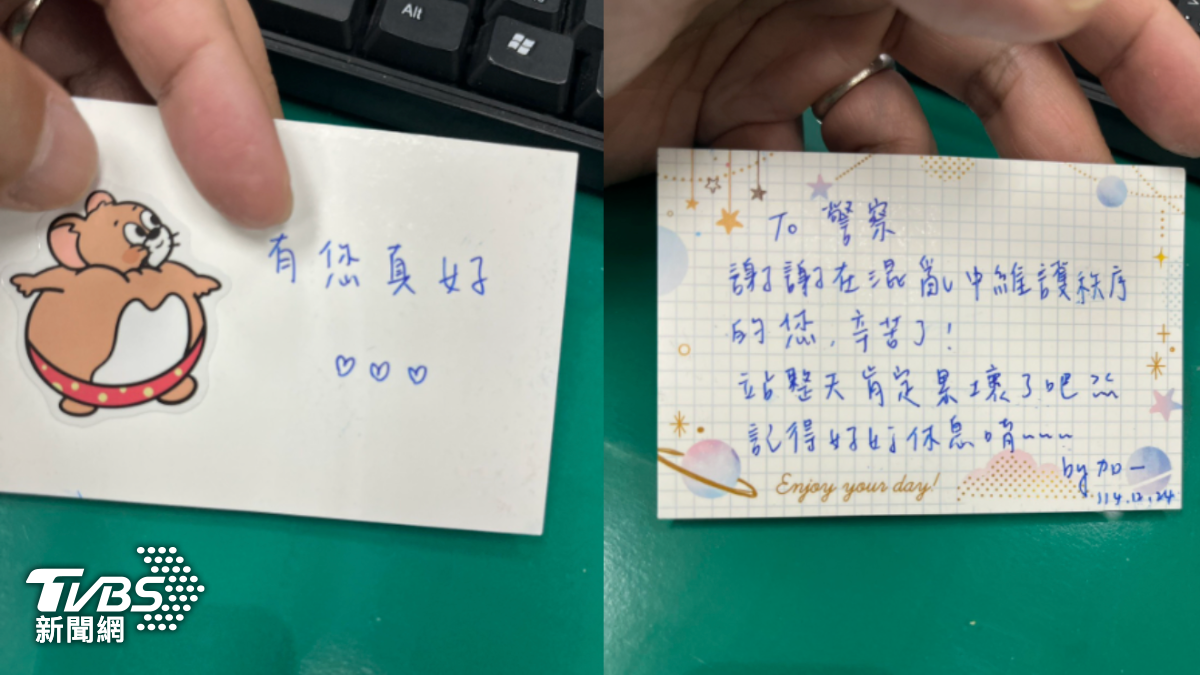 Alt
有您真好
♡♡♡
TVBS
新聞網
To 警察
謝謝在混亂中維護秩序
的您，辛苦了！
站整天肯定累壞了吧
記得好好休息唷~~~
by 加一
114.12.24
Enjoy your day!